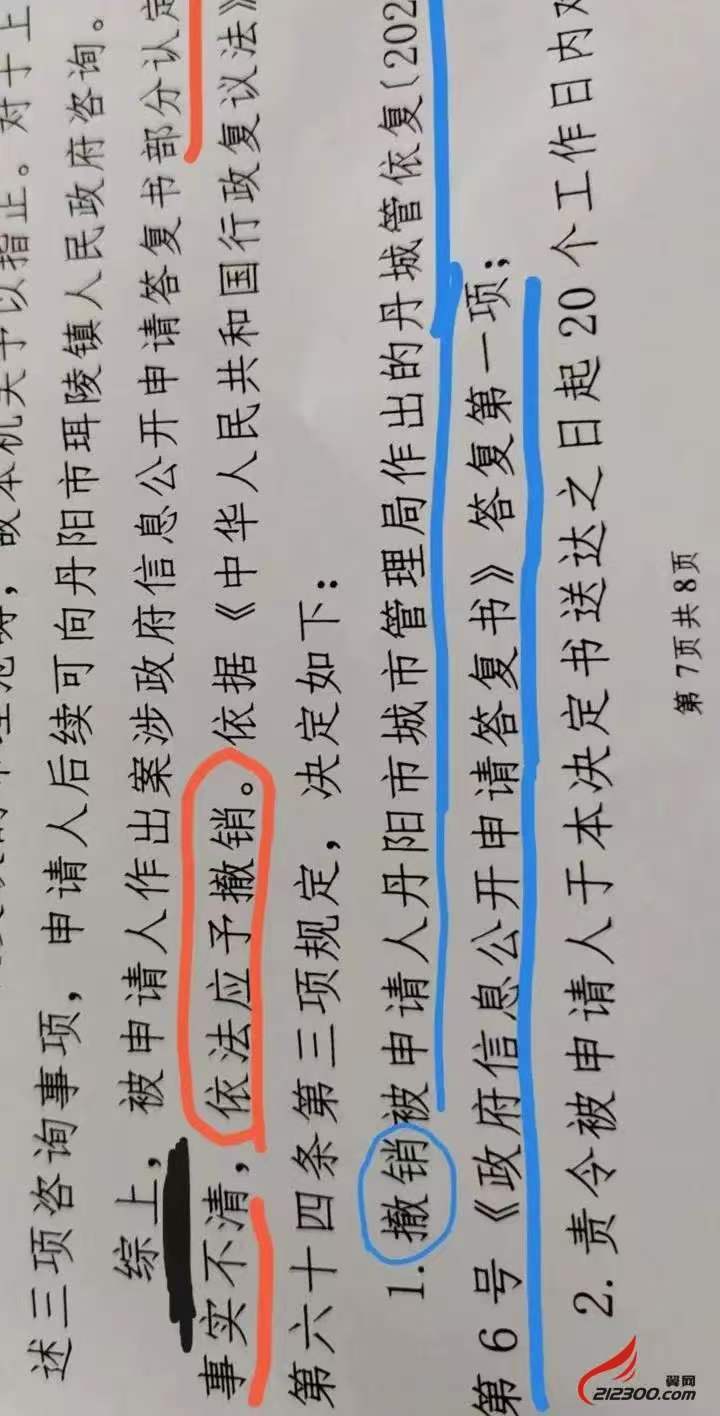 以指正。对于上
述三项咨询事项，申请人后续可向丹阳市珥陵镇人民政府咨询。
综上，被申请人作出案涉政府信息公开申请答复书部分认定
事实不清，依法应予撤销。依据《中华人民共和国行政复议法》
第六十四条第三项规定，决定如下：
1. 撤销被申请人丹阳市城市管理局作出的丹城管依复〔202
第6号《政府信息公开申请答复书》答复第一项；
2. 责令被申请人于本决定书送达之日起20个工作日内对
第7页共8页
翼网
212300.com